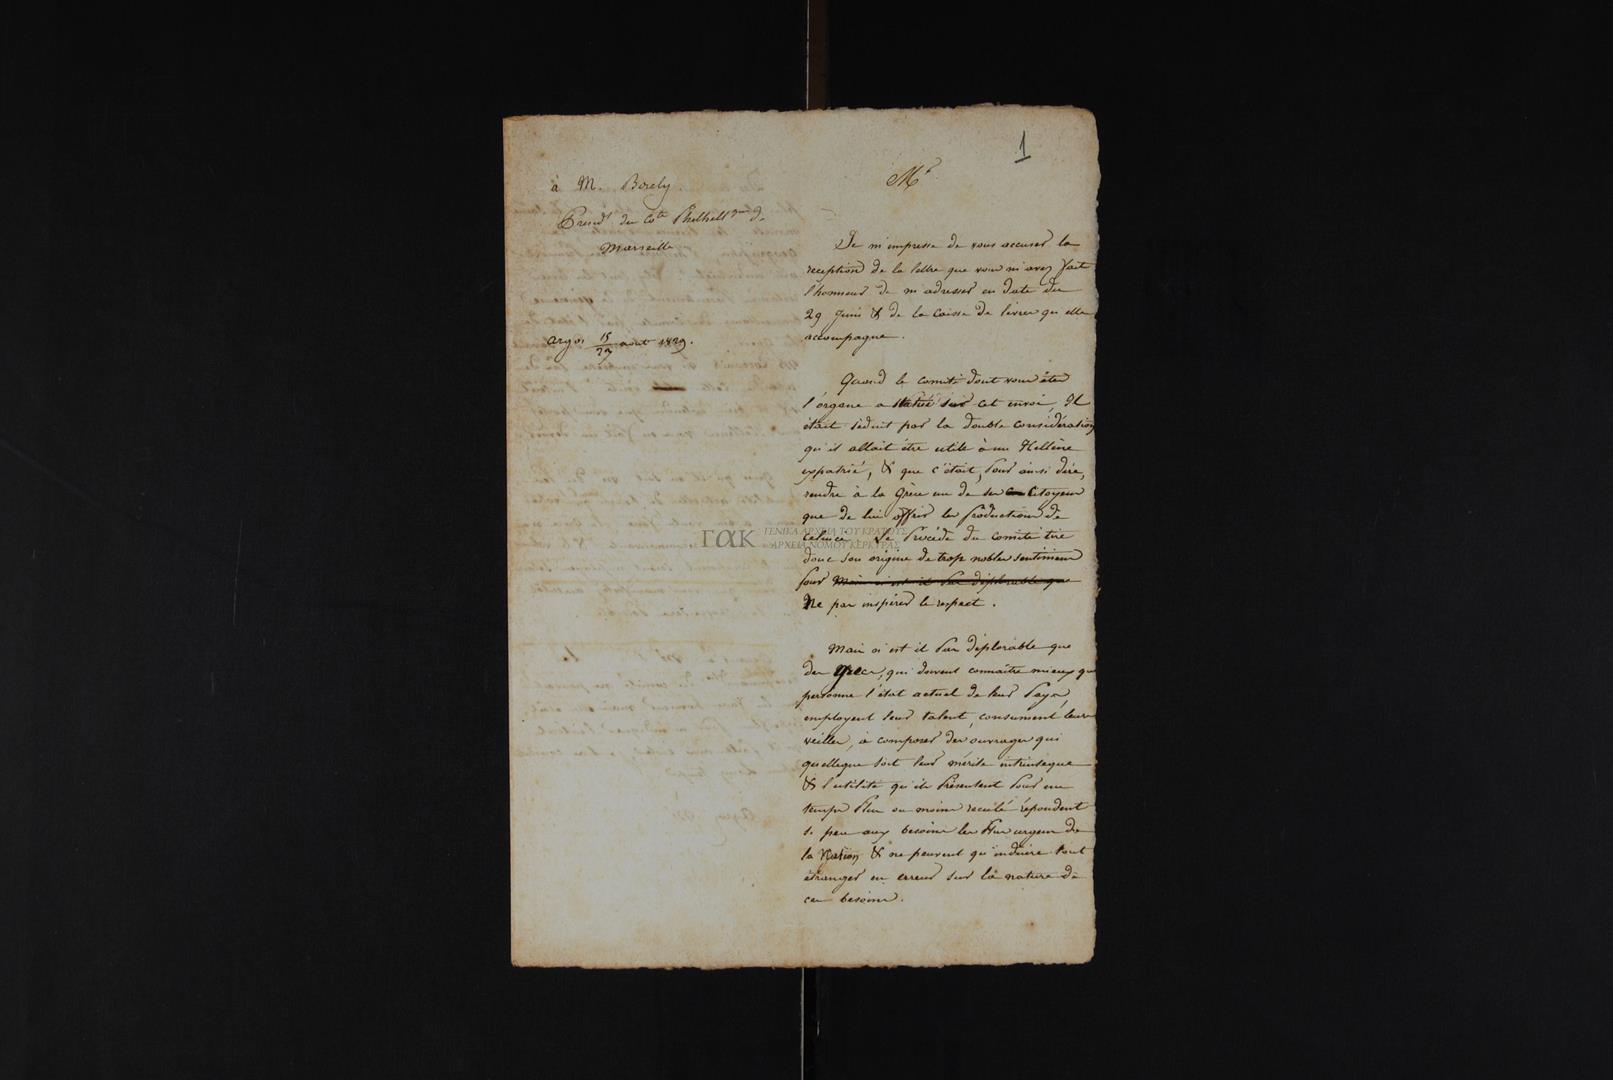 1
à M. Borely.
Présid.t du Co.té Philhell.que de
Marseille
Argos 15/27 août 1829.
M.r
Je m'empresse de vous accuser la
reception de la lettre que vous m'avez fait
l'honneur de m'adresser en date du
29 Juin & de la Caisse de livres qu'elle
accompagne.
Quand le comité dont vous êtes
l'organe a statué sur cet envoi, Il
était séduit par la double considération
qu'il allait être utile à un Hellène
expatrié, & que c'était, pour ainsi dire,
rendre à la Grèce un de ses Citoyens
que de lui offrir les productions de
Le Procédé du Comité tire
donc son origine de trop nobles sentimens
pour Mais n'est il pas déplorable que
ne pas inspirer le respect.
Mais n'est il pas déplorable que
des Grecs, qui doivent connaître mieux que
personne l'état actuel de leur Pays,
employent leur talent, consument leurs
veilles, à composer des ouvrages qui
quelleque soit leur mérite intrinseque
& l'utilité qu'ils présentent pour un
temps plus ou moins reculé répondent
si peu aux besoins les plus urgens de
la Nation & ne peuvent qu'induire tout
étranger en erreur sur la nature de
ces besoins.
ΓΑΚ
ΓΕΝΙΚΑ ΑΡΧΕΙΑ ΤΟΥ ΚΡΑΤΟΥΣ
ΑΡΧΕΙΑ ΝΟΜΟΥ ΚΕΡΚΥΡΑΣ